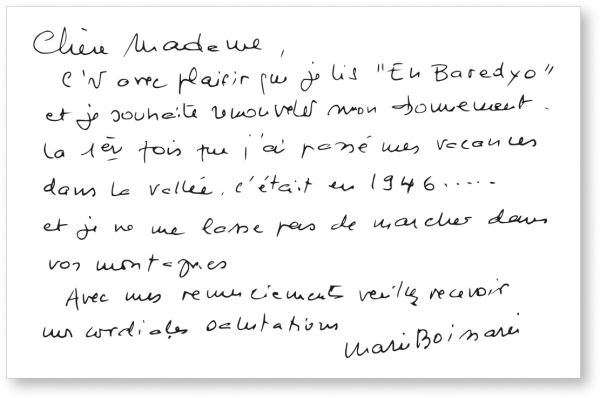 Chère Madame,
C'est avec plaisir que je lis "En Baredyo"
et je souhaite renouveler mon abonnement.
La 1ère fois que j'ai passé mes vacances
dans la vallée, c'était en 1946.....
et je ne me lasse pas de marcher dans
vos montagnes
Avec mes remerciements veuillez recevoir
mes cordiales salutations